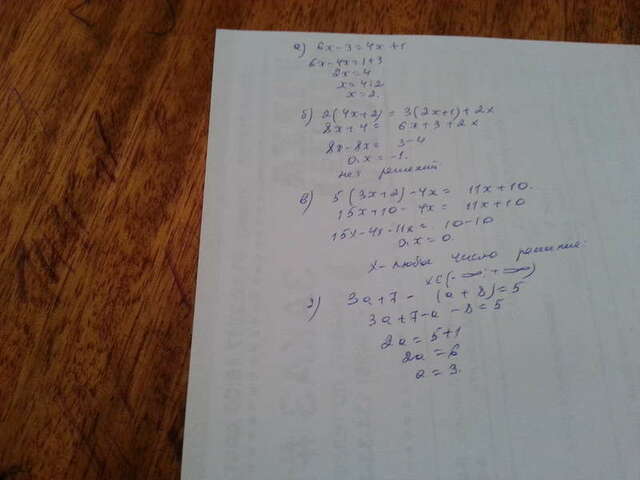 а) 6x-3=4x+1
6x-4x=1+3
2x=4
x=4:2
x=2.
б) 2(4x+2) = 3(2x+1)+2x
8x+4= 6x+3+2x
8x-8x= 3-4
0.x=-1.
нет решений
в) 5(3x+2)-4x= 11x+10.
15x+10-4x= 11x+10
15x-4x-11x= 10-10
0.x=0.
x-любое число решения.
x∈(-∞;+∞)
г) 3a+7-(a+8)=5
3a+7-a-8=5
2a=5+1
2a=6
a=3.